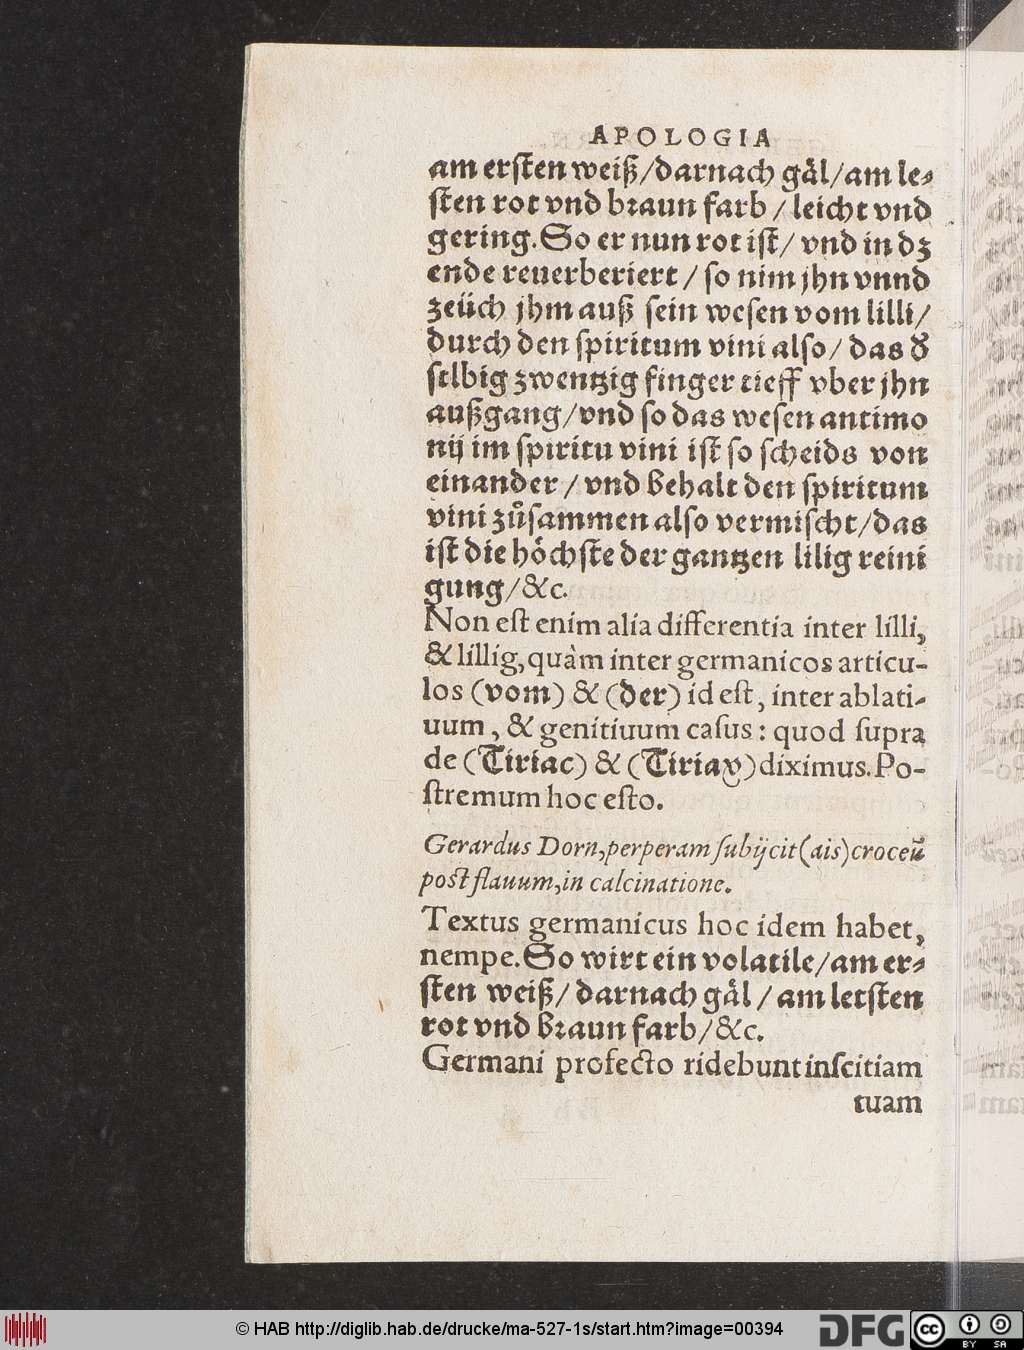 APOLOGIA
am ersten weiß/darnach gäl/am le-
sten rot vnd braun farb / leicht vnd
gering. So er nun rot ist/ vnd in dz
ende reuerberiert / so nim jhn vnnd
zeüch jhm auß sein wesen vom lilli/
durch den spiritum vini also/ das d̕
selbig zwentzig finger tieff vber jhn
außgang/vnd so das wesen antimo
nij im spiritu vini ist so scheids von
einander / vnd behalt den spiritum
vini zůsammen also vermischt/das
ist die höchste der gantzen lilig reini
gung/&c.
Non est enim alia differentia inter lilli,
& lillig, quàm inter germanicos articu-
los (vom) & (der) id est, inter ablati-
uum, & genitiuum casus: quod supra
de (Tiriac) & (Tiriay) diximus. Po-
stremum hoc esto.
Gerardus Dorn, perperam subijcit (ais) croceū
post flauum, in calcinatione.
Textus germanicus hoc idem habet,
nempe. So wirt ein volatile/am er-
sten weiß/ darnach gäl / am letsten
rot vnd braun farb/&c.
Germani profecto ridebunt inscitiam
tuam
© HAB http://diglib.hab.de/drucke/ma-527-1s/start.htm?image=00394
DFG
cc
BY SA